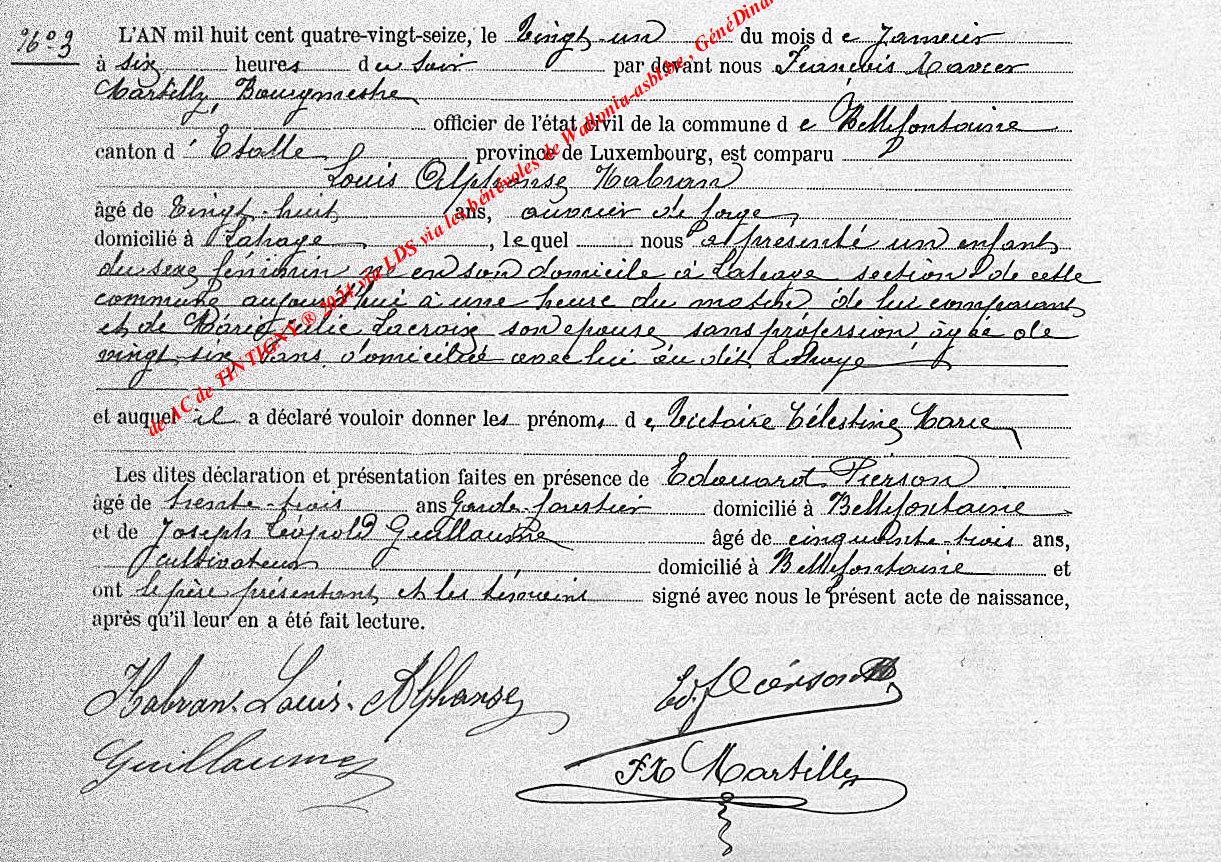 N° 3
L'AN mil huit cent quatre-vingt-seize, le Vingt-un du mois de Janvier
à six heures du soir par devant nous François Xavier
Martilly, Bourgmestre
officier de l'état civil de la commune de Bellefontaine
canton d'Etalle province de Luxembourg, est comparu
Louis Alphonse Habran
âgé de Vingt-huit ans, ouvrier de forge
domicilié à Lahage, lequel nous a présenté un enfant
du sexe féminin né en son domicile à Lahage section de cette
commune aujourd'hui à une heure du matin, de lui comparant
et de Marie Julie Lacroix son épouse, sans profession, âgée de
vingt-six ans domiciliée avec lui au dit Lahage
et auquel il a déclaré vouloir donner les prénoms de Victoire Célestine Marie
Les dites déclaration et présentation faites en présence de Edouard Pierson
âgé de trente-trois ans Garde-forestier domicilié à Bellefontaine
et de Joseph Léopold Guillaume âgé de cinquante-trois ans,
cultivateur domicilié à Bellefontaine et
ont le père présentant et les témoins signé avec nous le présent acte de naissance,
après qu'il leur en a été fait lecture.
Habran Louis Alphonse
Ed. Pierson
Guillaume
FX Martilly
de AC de TINTIGNY ® 2024 via LDS via les bénévoles de Wallonia-asbl.be, GénéDinan